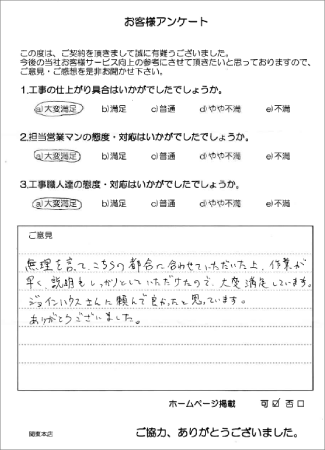 お客様アンケート
この度は、ご契約を頂きまして誠に有難うございました。
今後の当社お客様サービス向上の参考にさせて頂きたいと思っておりますので、
ご意見・ご感想を是非お聞かせ下さい。
1.工事の仕上がり具合はいかがでしたでしょうか。
a)大変満足 b)満足 c)普通 d)やや不満 e)不満
2.担当営業マンの態度・対応はいかがでしたでしょうか。
a)大変満足 b)満足 c)普通 d)やや不満 e)不満
3.工事職人達の態度・対応はいかがでしたでしょうか。
a)大変満足 b)満足 c)普通 d)やや不満 e)不満
ご意見
無理を言って、こちらの都合に合わせていただいた上、作業が
早く、説明もしっかりとしていただけたので、大変満足しています。
ジョインハウスさんに頼んで良かったと思っています。
ありがとうございました。
ホームページ掲載 可☑ 否□
関東本店
ご協力、ありがとうございました。